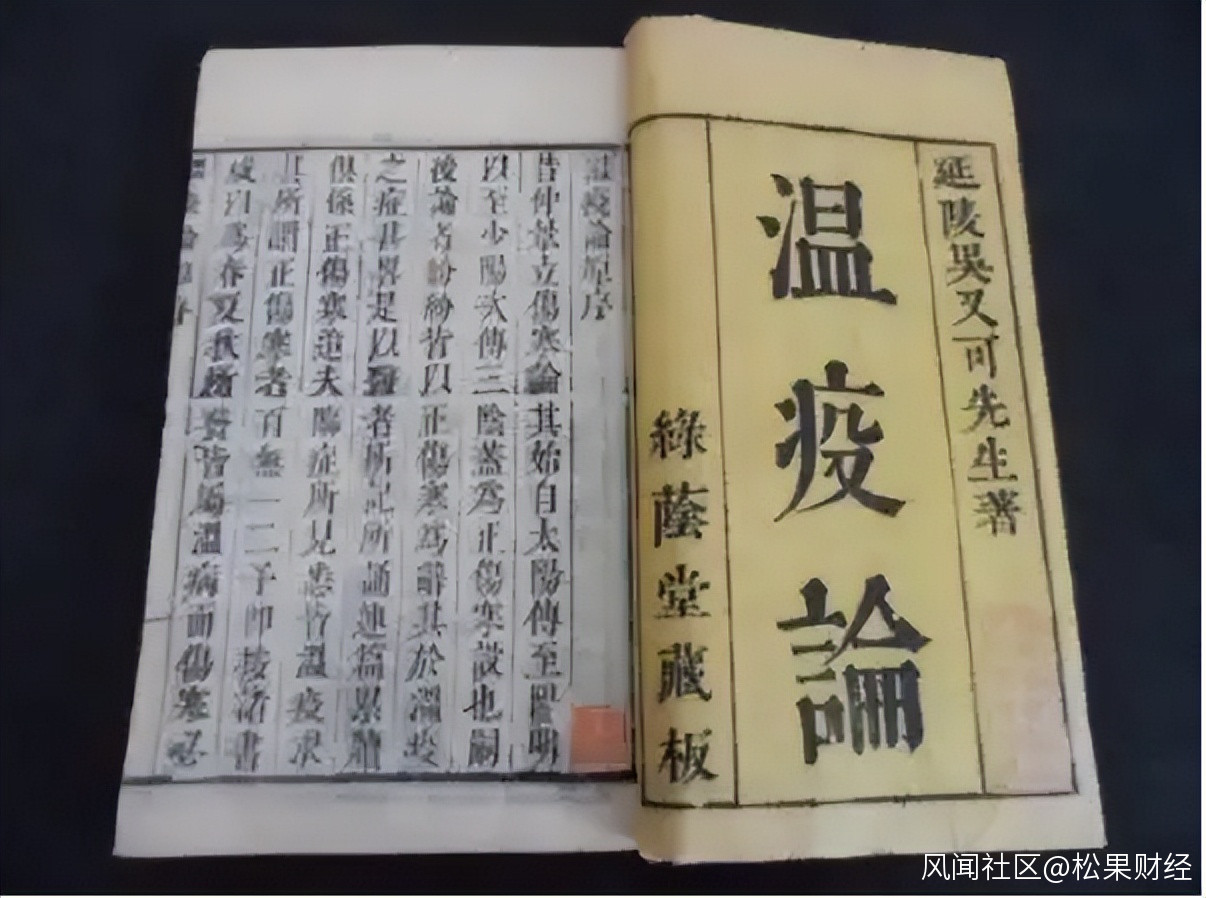 延陵吳又可先生著
温疫論
綠蔭堂藏板
溫疫論原序
昔仲景立傷寒論其始自太陽傳至陽明
以至少陽次傳三陰蓋為正傷寒設也嗣
後論者紛紛皆以正傷寒為辭其於溫疫
之症甚畧是以業者所記所誦連篇累牘
俱係正傷寒迨夫臨症所見悉皆溫疫求
其所謂正傷寒者百無一二予即按諸書
咸曰為春夏秋所發皆屬溫病而傷寒必
风闻社区@松果财经